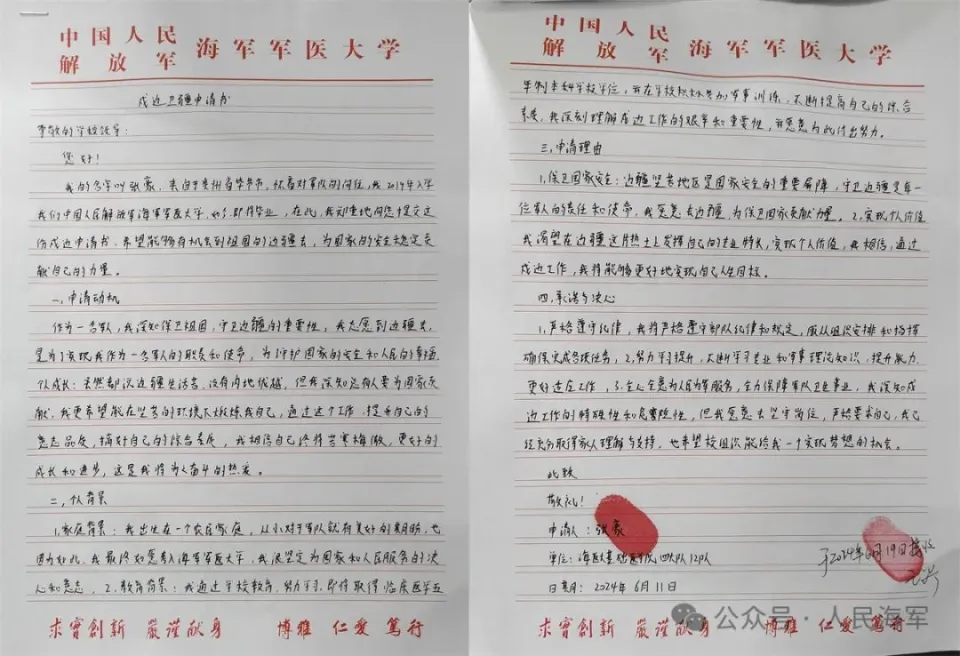 中国人民
解放军
海军军医大学
戍边卫疆申请书
尊敬的学校领导：
您好！
我的名字叫张豪，来自于贵州省毕节市。怀着对军队的向往，我2019年入学
我们中国人民解放军海军军医大学，如今即将毕业，在此，我郑重地向您提交这
份戍边申请书，希望能够有机会到祖国的边疆去，为国家的安全稳定贡
献自己的力量。
一、申请动机
作为一名军人，我深知保卫祖国，守卫边疆的重要性，我志愿到边疆去，
是为了实现我作为一名军人的职责和使命，为守护国家的安全和人民的幸福。
个人成长：虽然都说边疆生活苦，没有内地优越，但我深知军人要为国家贡
献，我更希望能在坚苦的环境下磨炼我自己，通过这个工作，提升自己的
意志品质，搞好自己的综合素质，我相信自己终将苦寒梅傲，更好的
成长和进步，这是我将为之奋斗的热爱。
二、个人背景
1.家庭背景：我出生在一个农民家庭，从小对于军队就有美好的期盼，也
因为如此，我最终如愿考入海军军医大学，我很坚定为国家和人民服务的决
心和意志。2.教育背景：我通过学校教育，努力学习，即将取得临床医学五
求实创新 严谨献身 博雅 仁爱 笃行
中国人民
解放军
海军军医大学
年制本科学校学位，并在学校积极参加军事训练，不断提高自己的综合
素质，我深刻理解戍边工作的艰辛和重要性，并愿意为此付出努力。
三、申请理由
1.保卫国家安全：边疆坚苦地区是国家安全的重要屏障，守卫边疆是每一
位军人的责任和使命，我愿意去边疆，为保卫国家贡献力量。2.实现个人价值
我渴望在边疆这片热土上发挥自己的专业特长，实现个人价值，我相信，通过
戍边工作，我将能够更好地实现自己人生目标。
四、承诺与决心
1.严格遵守纪律，我将严格遵守部队纪律和规定，服从组织安排和指挥
确保完成各项任务，2.努力学习提升，不断学习专业和军事理论知识，提升能力，
更好适应工作，3.全心全意为人民为军服务，全力保障军队卫生事业，我深知戍
边工作的特殊性和危险性，但我愿意去坚守岗位，严格要求自己，我已
经充分取得家人理解与支持，也希望校组织能给我一个实现梦想的机会。
此致
敬礼！
申请人：张豪
单位：海医大基础医学院四大队12队
日期：2024年6月11日
于2024年6月19日接收
求实创新 严谨献身 博雅 仁爱 笃行
公众号·人民海军